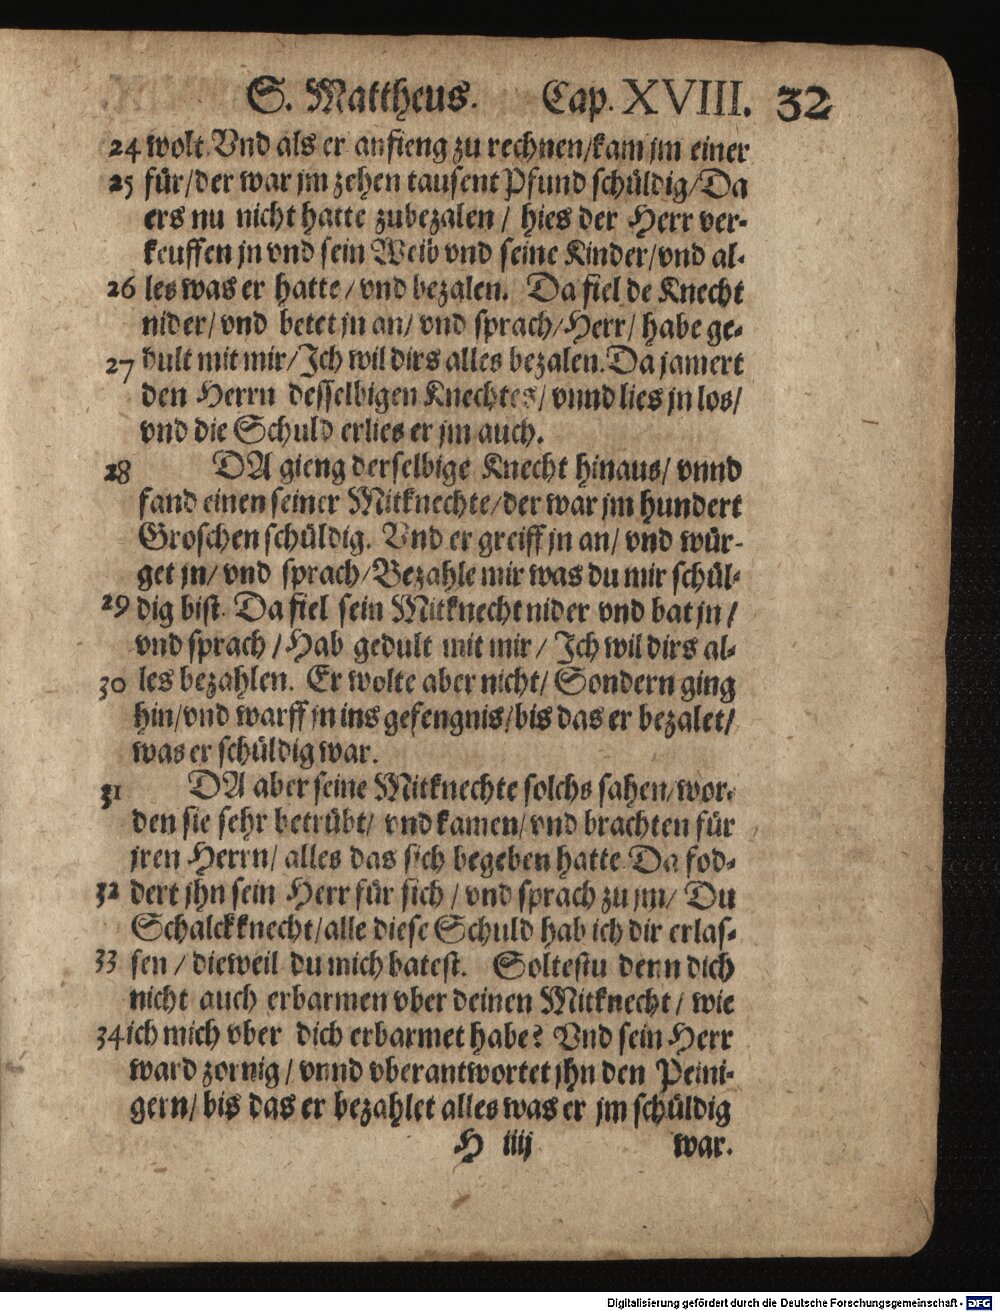 S. Mattheus. Cap. XVIII. 32
24 wolt. Vnd als er anfieng zu rechnen/kam jm einer
25 für/der war jm zehen tausent Pfund schüldig/Da
ers nu nicht hatte zubezalen / hies der Herr ver-
keuffen jn vnd sein Weib vnd seine Kinder/vnd al-
26 les was er hatte/vnd bezalen. Da fiel de Knecht
nider/ vnd betet jn an/ vnd sprach/Herr/ habe ge-
27 dult mit mir/Ich wil dirs alles bezalen. Da jamert
den Herrn desselbigen Knechtes/ vnnd lies jn los/
vnd die Schuld erlies er jm auch.
28 DA gieng derselbige Knecht hinaus/ vnnd
fand einen seiner Mitknechte/der war jm hundert
Groschen schüldig. Vnd er greiff jn an/ vnd wür-
get jn/ vnd sprach/Bezahle mir was du mir schül-
29 dig bist. Da fiel sein Mitknecht nider vnd bat jn/
vnd sprach/Hab gedult mit mir/ Ich wil dirs al-
30 les bezahlen. Er wolte aber nicht/ Sondern ging
hin/vnd warff jn ins gefengnis/bis das er bezalet/
was er schüldig war.
31 DA aber seine Mitknechte solchs sahen/wor-
den sie sehr betrübt/ vnd kamen/vnd brachten für
jren Herrn/ alles das sich begeben hatte. Da fod-
32 dert jhn sein Herr für sich / vnd sprach zu jm/ Du
Schalckknecht/alle diese Schuld hab ich dir erlas-
33 sen / dieweil du mich batest. Soltestu denn dich
nicht auch erbarmen vber deinen Mitknecht/ wie
34 ich mich vber dich erbarmet habe? Vnd sein Herr
ward zornig/ vnnd vberantwortet jhn den Peini-
gern/ bis das er bezahlet alles was er jm schüldig
H iiij war.
Digitalisierung gefördert durch die Deutsche Forschungsgemeinschaft - DFG